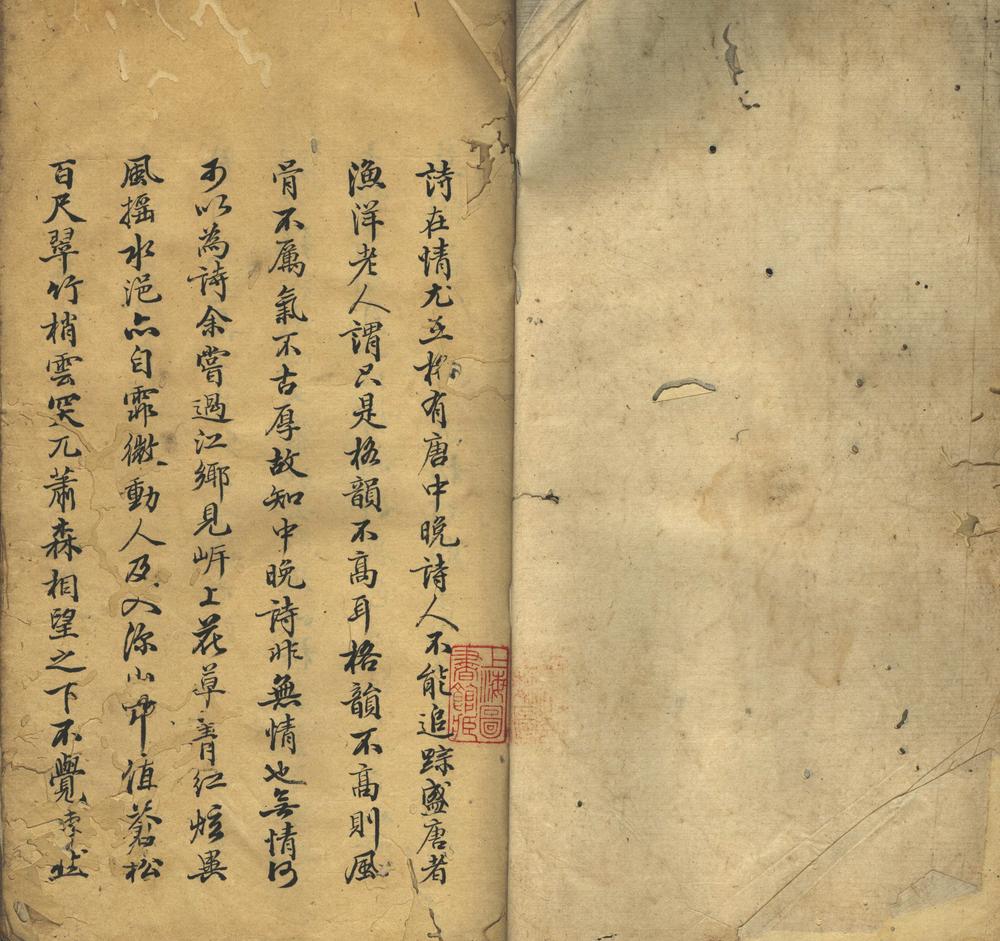 詩在情尤並格有唐中晚詩人不能追踪盛唐者
漁洋老人謂只是格韻不高耳格韻不高則風
骨不厲氣不古厚故知中晚詩非無情也無情何
可以為詩余嘗過江鄉見岍上花草菁紅炫異
風摇水浥亦自霏微動人及入深山中值蒼松
百尺翠竹梢雲突兀蕭森相望之下不覺
上海圖
書館藏